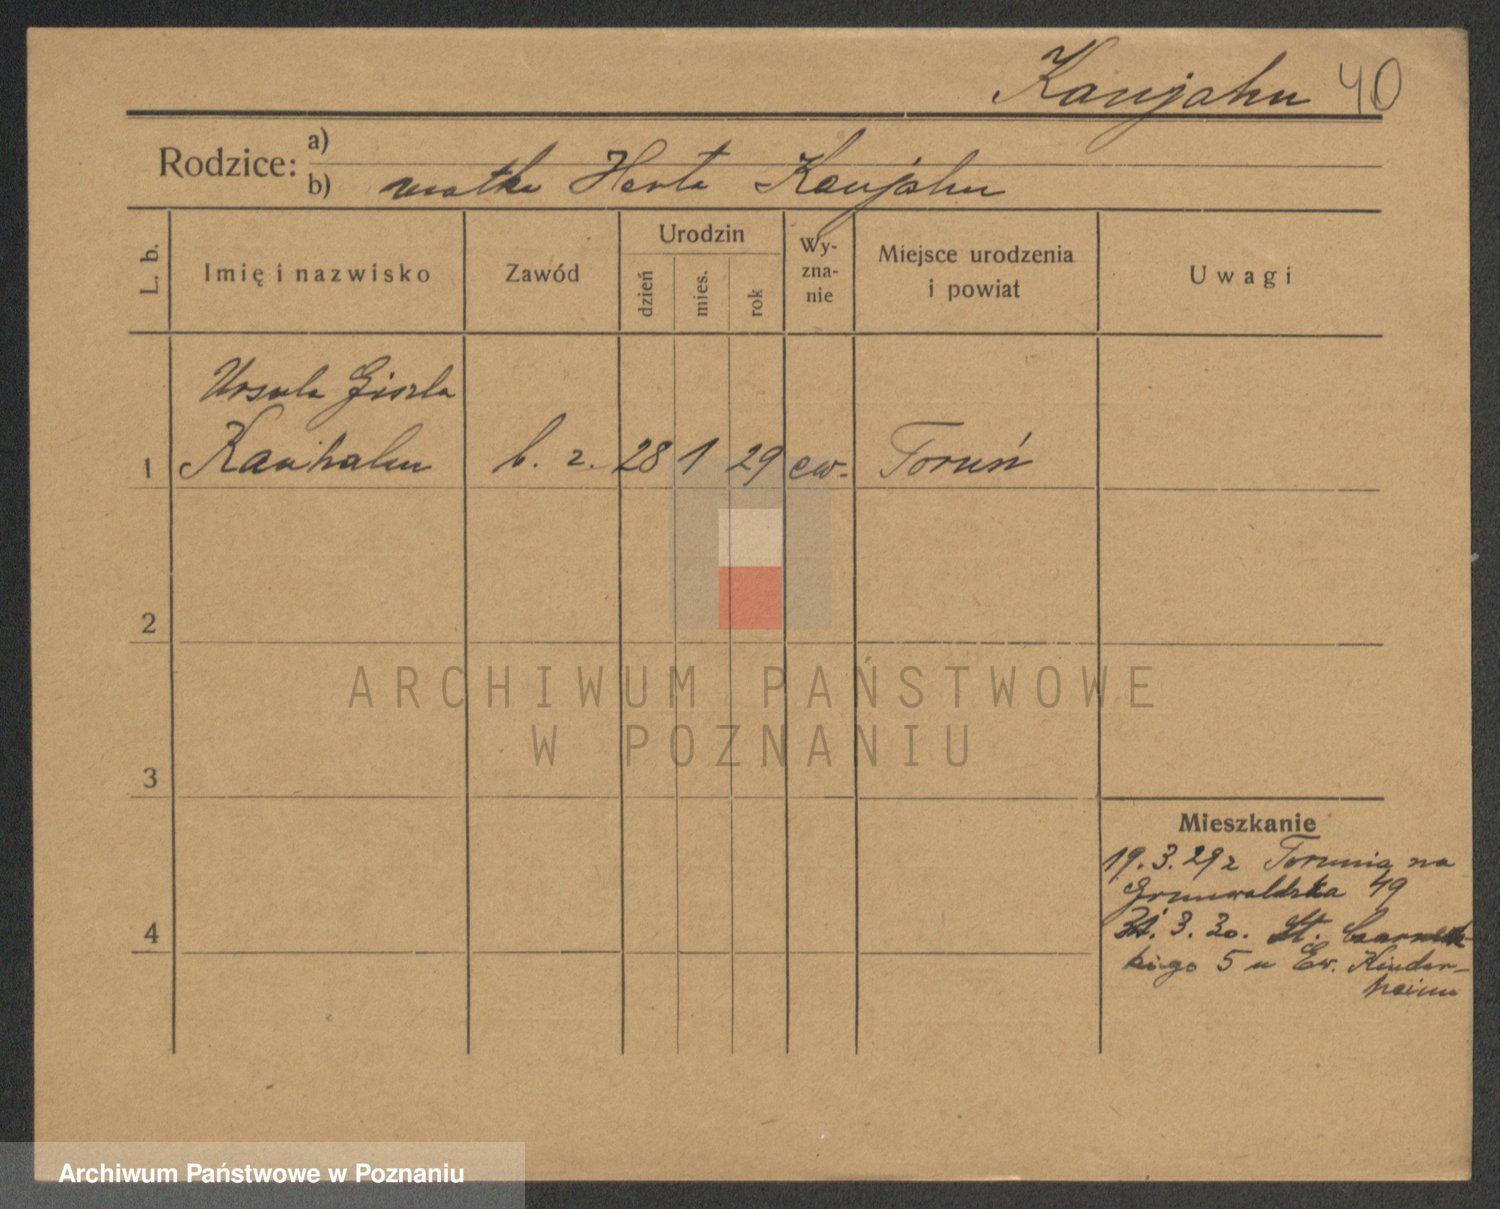 Kaujahn 40
Rodzice: a)
b) matka Herta Kaujahn
L. b.
Imię i nazwisko
Zawód
Urodzin
dzień
mies.
rok
Wy-
zna-
nie
Miejsce urodzenia
i powiat
Uwagi
Ursula Gizela
1 Kauhahn b. z. 28 1 29 ew. Toruń
2
ARCHIWUM PAŃSTWOWE
W POZNANIU
3
Mieszkanie
19.3.29 z Torunia na
Grunwaldzka 49
4
3. 30. St. Czarniec-
kiego 5 u Ew. Kinder-
heimu
Archiwum Państwowe w Poznaniu